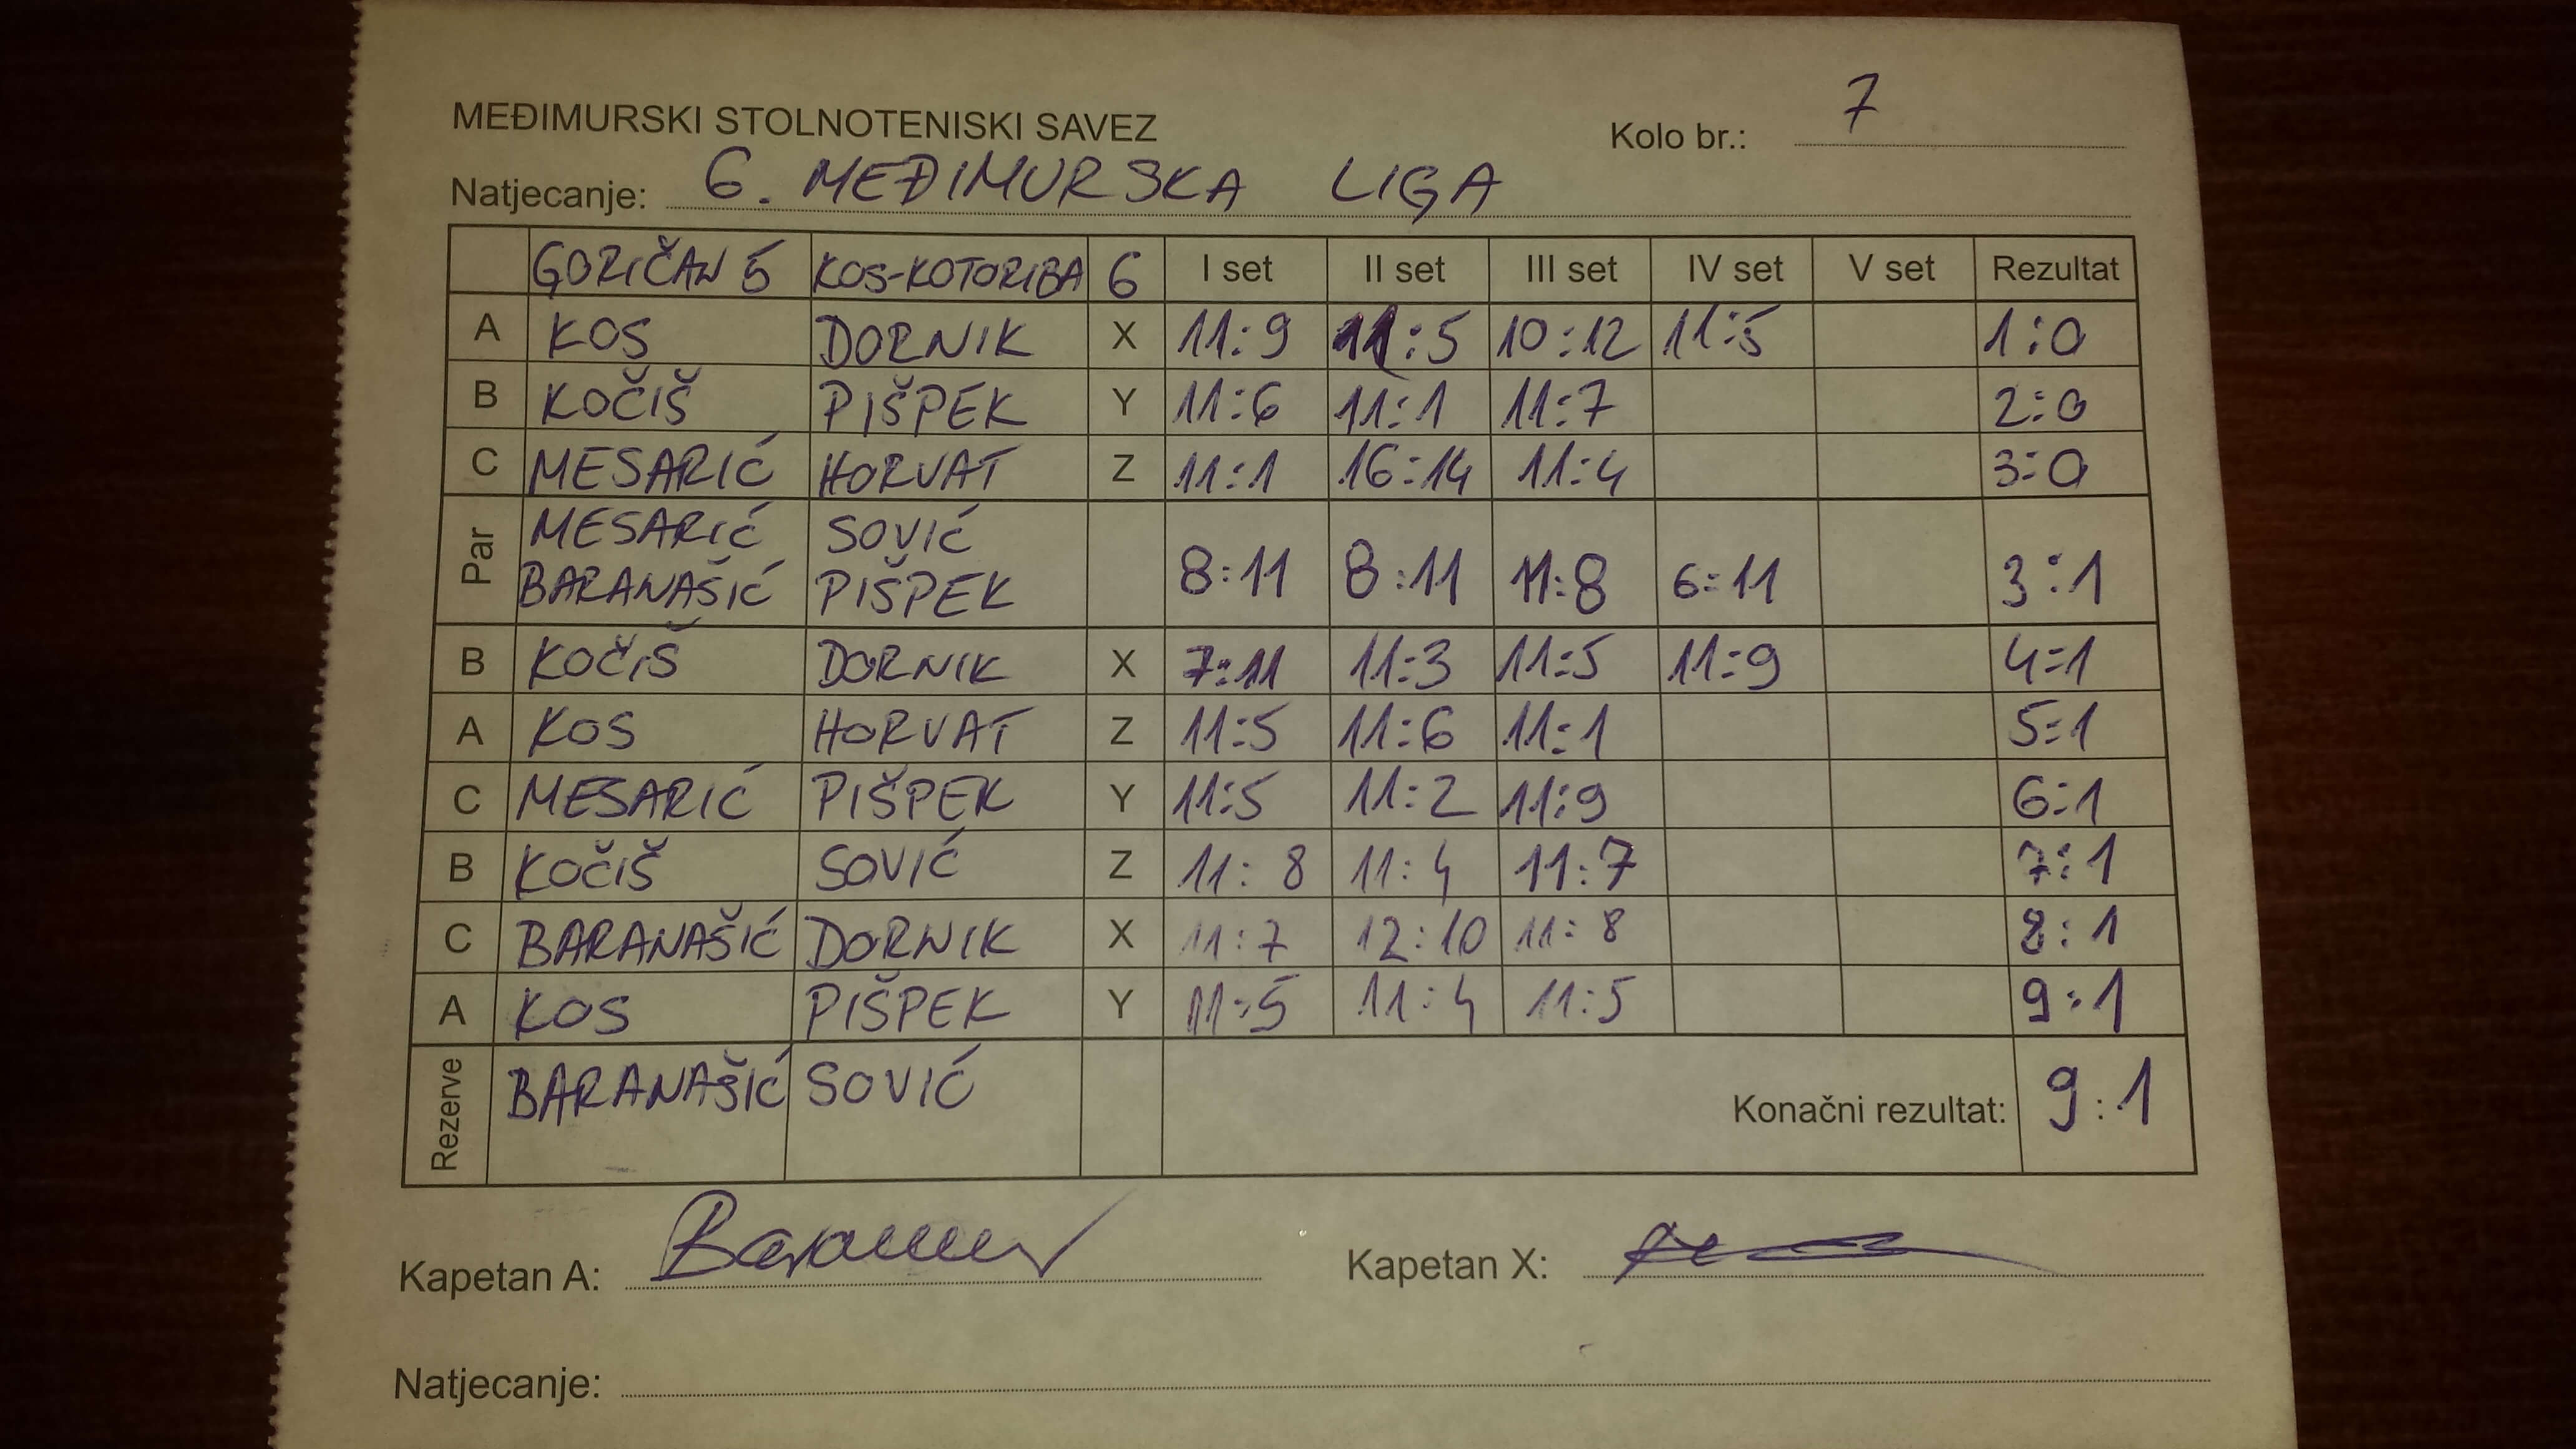 MEĐIMURSKI STOLNOTENISKI SAVEZ Kolo br.: 7
Natjecanje: 6. MEĐIMURSKA LIGA
GORIČAN 5 KOS-KOTORIBA 6 I set II set III set IV set V set Rezultat
A KOS DORNIK X 11:9 11:5 10:12 11:5 1:0
B KOČIŠ PIŠPEK Y 11:6 11:1 11:7 2:0
C MESARIĆ HORVAT Z 11:1 16:14 11:4 3:0
Par MESARIĆ SOVIĆ
BARANAŠIĆ PIŠPEK 8:11 8:11 11:8 6:11 3:1
B KOČIŠ DORNIK X 7:11 11:3 11:5 11:9 4:1
A KOS HORVAT Z 11:5 11:6 11:1 5:1
C MESARIĆ PIŠPEK Y 11:5 11:2 11:9 6:1
B KOČIŠ SOVIĆ Z 11:8 11:4 11:7 7:1
C BARANAŠIĆ DORNIK X 11:7 12:10 11:8 8:1
A KOS PIŠPEK Y 11:5 11:4 11:5 9:1
Rezerve BARANAŠIĆ SOVIĆ Konačni rezultat: 9:1
Kapetan A: Kapetan X:
Natjecanje: